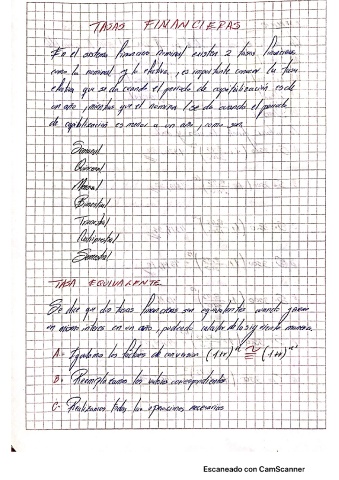 TASAS FINANCIERAS
En el sistema financiero nominal existen 2 tasas financieras
como la nominal y la efectiva, es importante conocer la tasa
efectiva que se da cuando el periodo de capitalización es de
un año, mientras que el nominal se da cuando el periodo
de capitalización es menor a un año, como son
Semanal
Quincenal
Mensual
Bimestral
Trimestral
Cuatrimestral
Semestral
TASA EQUIVALENTE
Se dice que dos tasas financieras son equivalentes cuando ganan
en mismo interes en un año, de la siguiente manera.
A- Igualamos los factores de conversion (1+i) ≅ (1+i)
B- Reemplazamos los valores correspondientes
C- Realizamos todas las operaciones necesarias
Escaneado con CamScanner